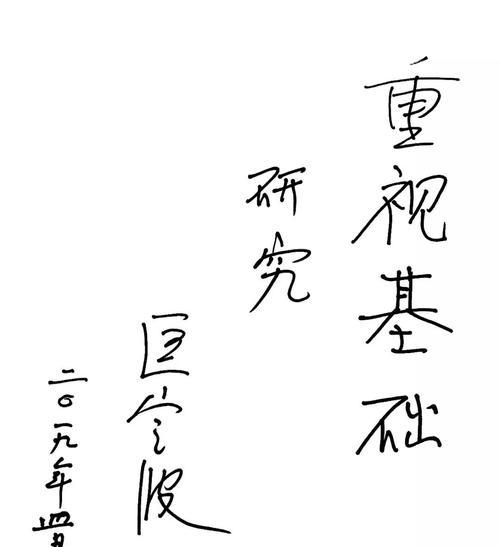 重视基础
研究
匡定波
二〇一九年四月